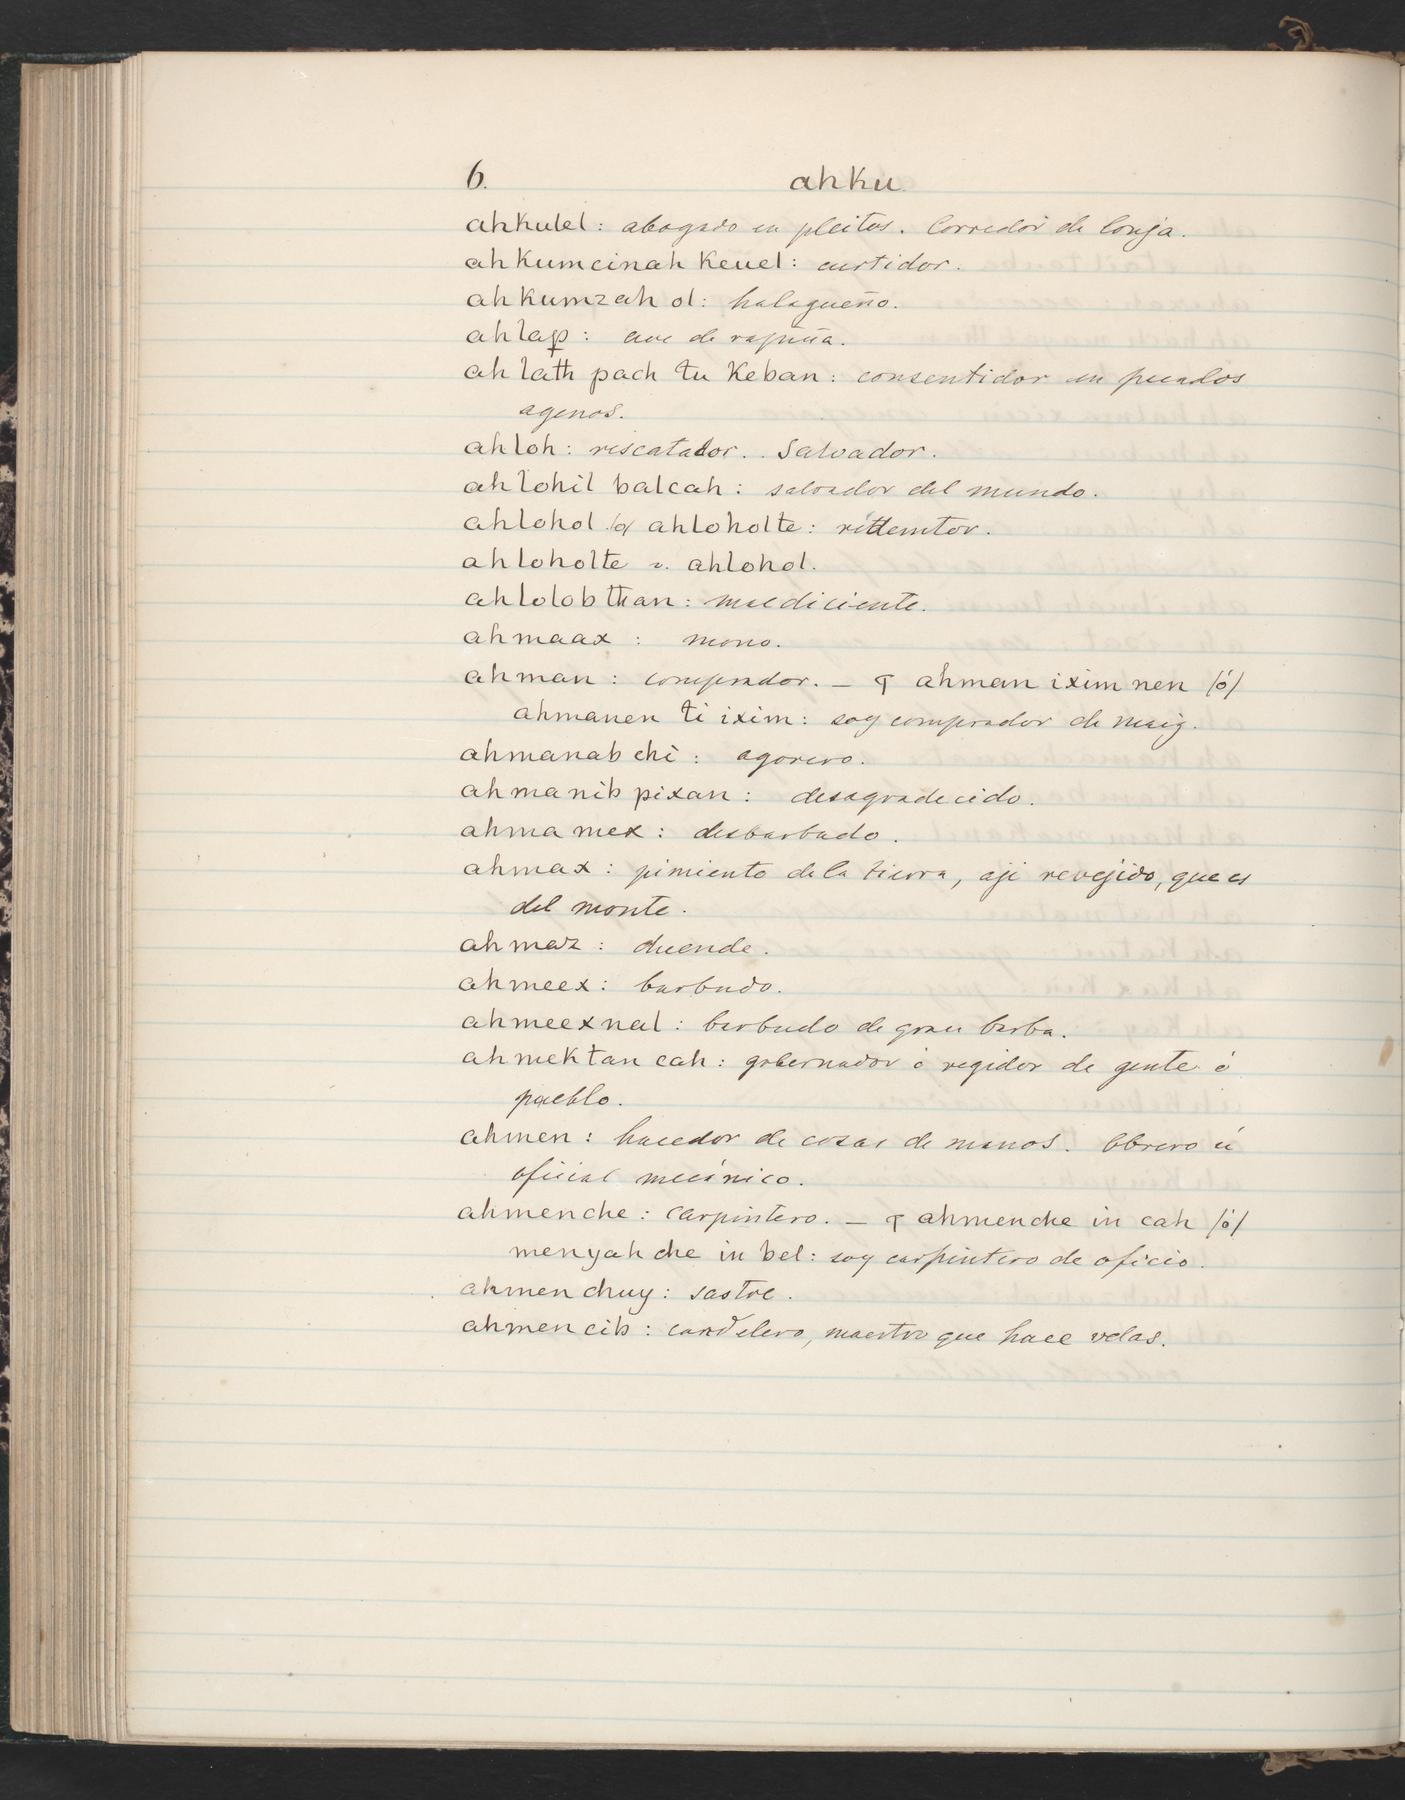 6. ahku
ahkulel: abogado en pleitos. Corredor de lonja.
ahkumcinah keuel: curtidor.
ahkumzah ol: halagueño.
ahlapp: ave de rapiña.
ahlath pach tu keban: consentidor en pecados
agenos.
ahloh: rescatador. Salvador.
ahlohil balcah: salvador del mundo.
ahlohol /o/ ahloholte: redemtor.
ahloholte v. ahlohol.
ahlolob than: maldiciente.
ahmaax: mono.
ahman: comprador. — ꟼ ahman ixim nen /ó/
ahmanen ti ixim: soy comprador de maiz.
ahmanab chi: agorero.
ahmanib pixan: desagradecido.
ahma mex: desbarbado.
ahmax: pimiento de la tierra, aji revejido, que es
del monte.
ahmaz: duende.
ahmeex: barbudo.
ahmeexnal: barbudo de gran barba.
ahmektan cah: gobernador ó regidor de gente ó
pueblo.
ahmen: hacedor de cosas de manos. Obrero ú
oficial mecánico.
ahmenche: carpintero. — ꟼ ahmenche in cah /ó/
menyah che in bel: soy carpintero de oficio.
ahmen chuy: sastre.
ahmen cib: candelero, maestro que hace velas.